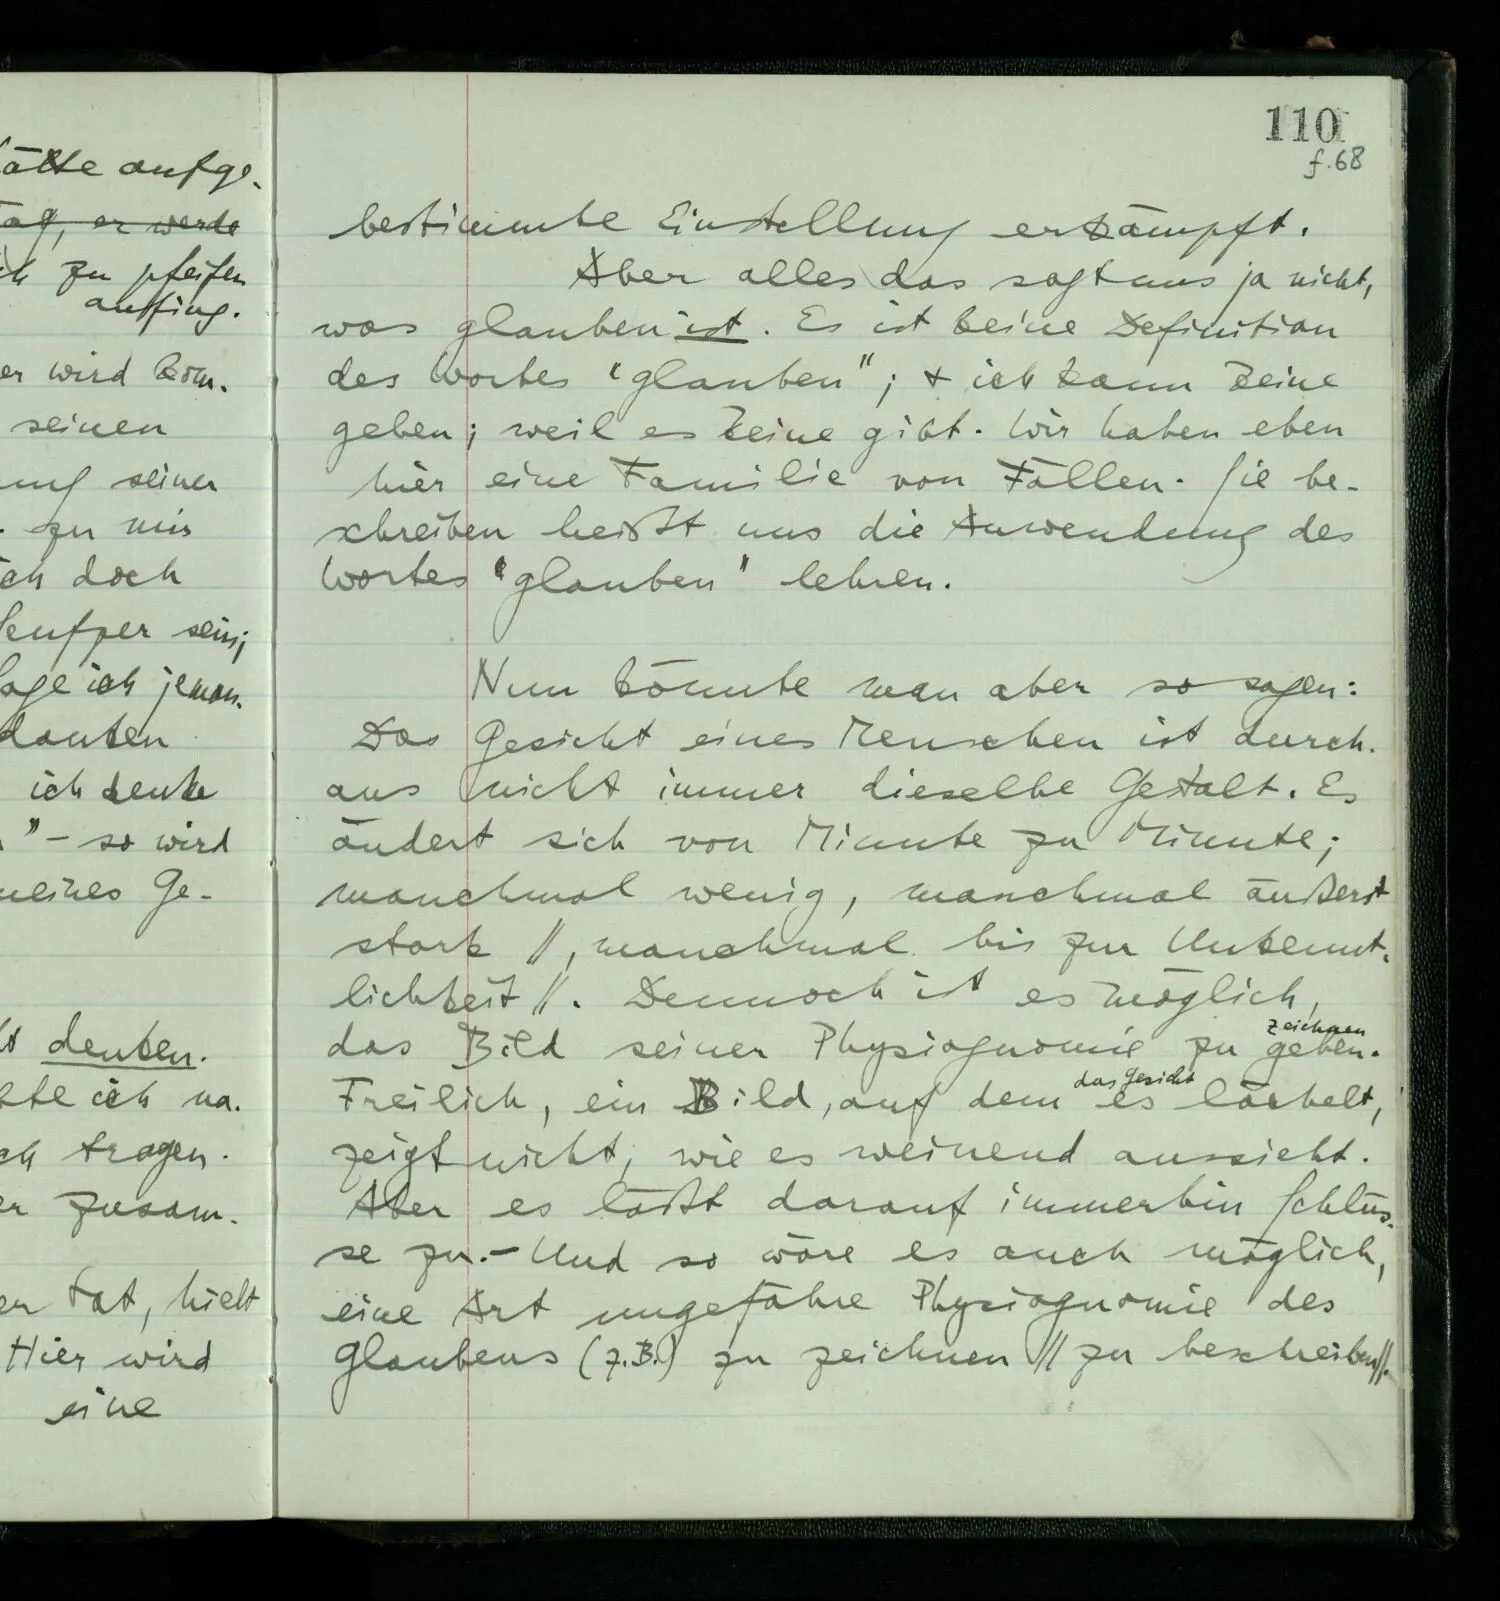 ätte aufge-
ag, er werde
ich zu pfeifen
anfing.
er wird kom-
seinen
ung seiner
zu mir
ich doch
Seufzer sein;
sage ich jeman-
danken
ich denke
" – so wird
meines Ge-
denken.
ich na-
ich tragen.
er zusam-
er Tat, hielt
Hier wird
eine
110
f.68
bestimmte Einstellung erkämpft.
Aber alles das sagt uns ja nicht,
was glauben ist. Es ist keine Definition
des Wortes "glauben"; + ich kann keine
geben; weil es keine gibt. Wir haben eben
hier eine Familie von Fällen. Sie be-
schreiben heißt uns die Anwendung des
Wortes "glauben" lehren.
Nun könnte man aber so sagen:
Das Gesicht eines Menschen ist durch-
aus nicht immer dieselbe Gestalt. Es
ändert sich von Minute zu Minute;
manchmal wenig, manchmal äußerst
stark //, manchmal bis zur Unkennt-
lichkeit //. Dennoch ist es möglich,
zeichnen
das Bild seiner Physiognomie zu geben.
das Gesicht
Freilich, ein Bild, auf dem es lächelt,
zeigt nicht, wie es weinend aussieht.
Aber es läßt darauf immerhin Schlüs-
se zu. – Und so wäre es auch möglich,
eine Art ungefähre Physiognomie des
Glaubens (z.B.) zu zeichnen // zu beschreiben //.